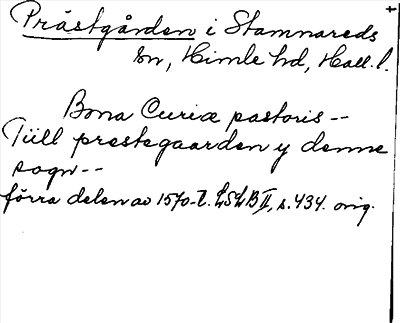 Prästgården i Stamnareds
sn, Himle hd, Hall. l.
Bona Curiæ pastoris --
Till prestegaarden y denne
sogn --
förra delen av 1570-t. LSLB II, s. 434. orig.